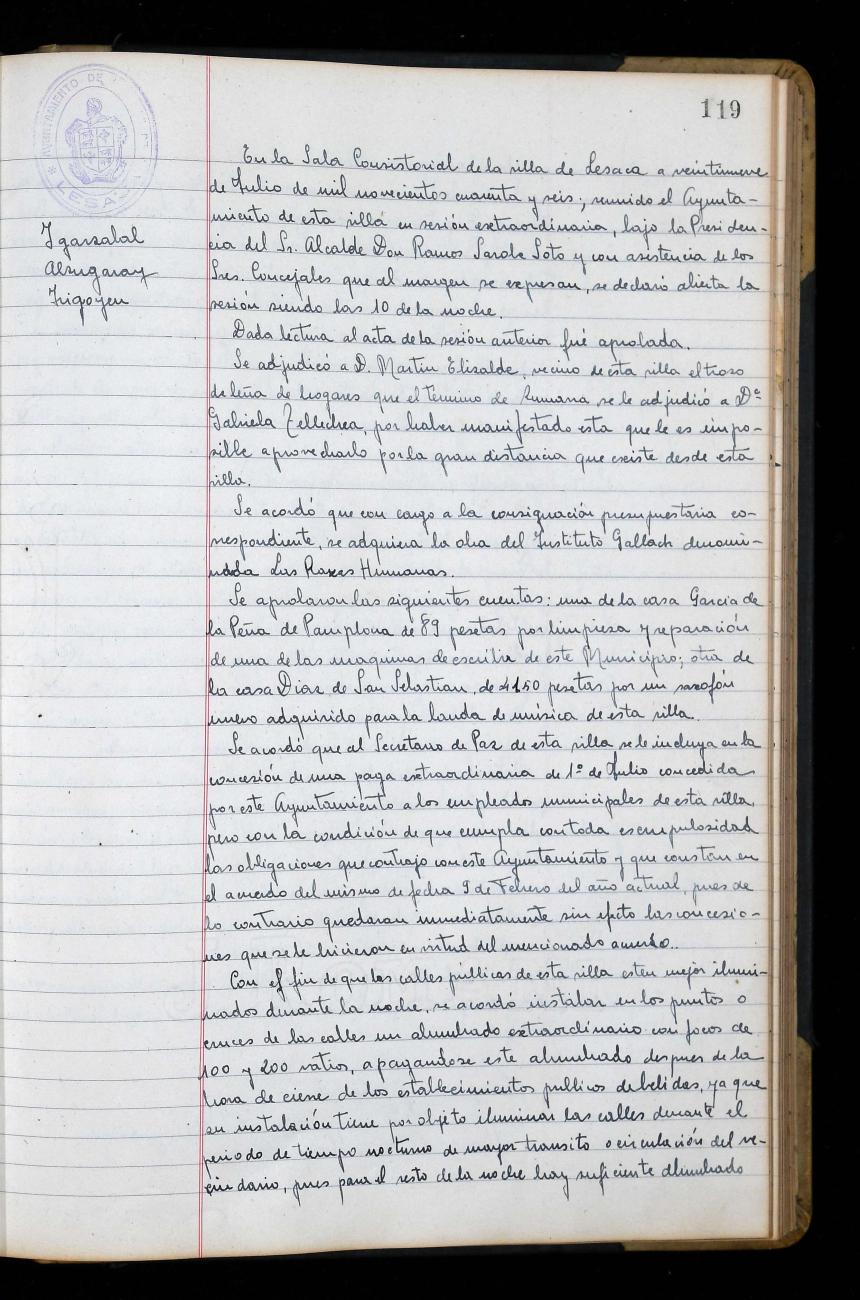 119
AYUNTAMIENTO DE
LESACA
Igarzabal
Alzugaray
Irigoyen
En la Sala Consistorial de la villa de Lesaca a veintinueve
de Julio de mil novecientos cuarenta y seis; reunido el Ayunta-
miento de esta villa en sesión extraordinaria, bajo la Presiden-
cia del Sr. Alcalde Don Ramos Sarola Soto y con asistencia de los
Sres. Concejales que al margen se expresan, se declaró abierta la
sesión siendo las 10 de la noche.
Dada lectura al acta de la sesión anterior fué aprobada.
Se adjudicó a D. Martin Elizalde, vecino de esta villa el trozo
de leña de hogares que el término de se le adjudicó a Dª
Gabriela Tellechea, por haber manifestado esta que le es impo-
sible aprovecharlo por la gran distancia que existe desde esta
villa.
Se acordó que con cargo a la consignación presupuestaria co-
rrespondiente, se adquiera la obra del Instituto Gallach denomi-
nada Las Razas Humanas.
Se aprobaron las siguientes cuentas: una de la casa Garcia de
la Peña de Pamplona de 89 pesetas por limpieza y reparación
de una de las maquinas de escribir de este Municipio; otra de
la casa Diaz de San Sebastian, de 4150 pesetas por un saxofón
nuevo adquirido para la banda de música de esta villa.
Se acordó que al Secretario de Paz de esta villa se le incluya en la
concesión de una paga extraordinaria de 1º de Julio concedida
por este Ayuntamiento a los empleados municipales de esta villa,
pero con la condición de que cumpla con toda escrupulosidad
las obligaciones que contrajo con este Ayuntamiento y que constan en
el acuerdo del mismo de fecha 9 de Febrero del año actual, pues de
lo contrario quedaran inmediatamente sin efecto las concesio-
nes que se le hicieron en virtud del mencionado acuerdo.
Con el fin de que las calles públicas de esta villa esten mejor ilumi-
nados durante la noche, se acordó instalar en los puntos o
cruces de las calles un alumbrado extraordinario con focos de
100 y 200 vatios, apagandose este alumbrado despues de la
hora de cierre de los establecimientos publicos de bebidas, ya que
su instalación tiene por objeto iluminar las calles durante el
periodo de tiempo nocturno de mayor transito o circulación del ve-
cindario, pues para el resto de la noche hay suficiente alumbrado